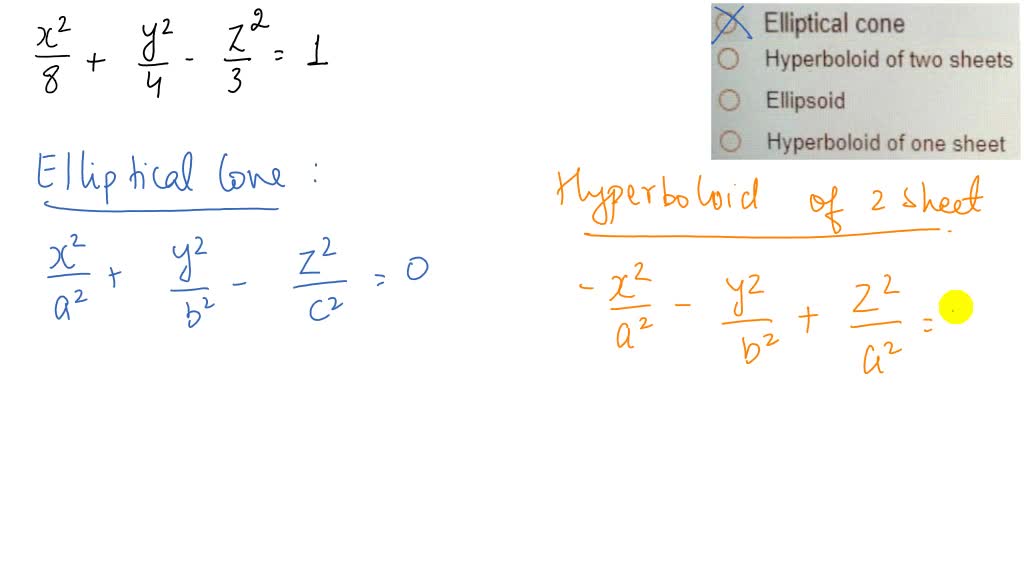 x²/8 + y²/4 - z²/3 = 1
Elliptical cone
Hyperboloid of two sheets
Ellipsoid
Hyperboloid of one sheet
Elliptical Cone :
x²/a² + y²/b² - z²/c² = 0
Hyperboloid of 2 sheet
- x²/a² - y²/b² + z²/a² =